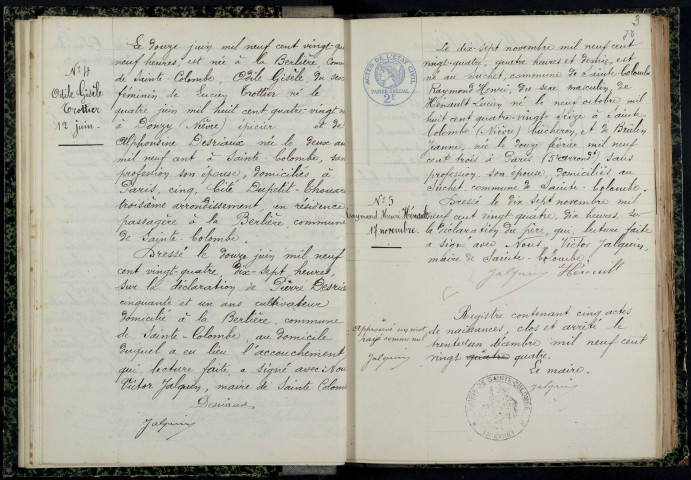 N° 4
Odile Gisèle
Trottier
12 juin.
Le douze juin mil neuf cent vingt-qu
neuf heures, est née à la Berlière, comm
de Sainte-Colombe, Odile Gisèle du sex
féminin de Lucien Trottier né le
quatre juin mil huit cent quatre-vingt-
à Donzy (Nièvre) épicier et de
Alphonsine Desriaux née le deux
mil neuf cent à Sainte Colombe, san
profession son épouse, domiciliés à
Paris, cinq, Cité Dupetit-Thouar
troisième arrondissement, en résidence
passagère à la Berlière, commune
de Sainte-Colombe.
Dressé le douze juin mil neuf
cent vingt-quatre, dix-sept heures,
sur la déclaration de Pierre Desria
cinquante et un ans cultivateur
domicilié à la Berlière, commune
de Sainte-Colombe, au domicile
duquel a eu lieu l'accouchement
qui, lecture faite, a signé avec Nou
Victor Jalquin, maire de Sainte Colom
Desriaux
Jalquin
3
ACTES DE L'ÉTAT CIVIL
PAPIER SPÉCIAL
2F
Le dix-sept novembre mil neuf cent
vingt-quatre, quatre heures et demie, est
né au Suchet, commune de Sainte-Colombe
Raymond Henri, du sexe masculin de
Hénault Lucien né le neuf octobre mil
huit cent quatre-vingt seize à Sainte
Colombe (Nièvre) bûcheron, et de
Jeanne, née le douze février mil neuf
cent trois à Paris (5e arrondt) sans
profession, son épouse, domiciliés au
Suchet, commune de Sainte-Colombe.
N° 5
Raymond Henri Hénault
17 novembre.
Dressé le dix sept novembre mil
neuf cent vingt quatre, dix heures, sur
la déclaration du père, qui, lecture faite
a signé avec Nous, Victor Jalquin,
maire de Sainte-Colombe.
Jalquin Hénault
Approuvé un mot
rayé comme nul
Jalquin
Registre contenant cinq actes
de naissances, clos et arrêté le
trente un décembre mil neuf cent
vingt quatre quatre.
Le maire.
Jalquin
MAIRIE DE SAINTE-COLOMBE
(NIÈVRE)